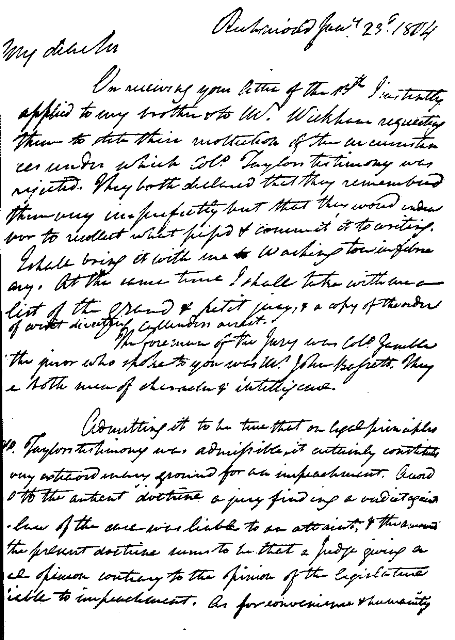 Richmond Jan.y 23.d 1804
My dear Sir
On receiving your letter of the 13th I instantly
applied to my brother & to Mr. Wickham requesting
them to state their recollection of the circumstan
ces under which Colo. Taylors testimony was
rejected. They both declared that they remembered
them very imperfectly but that they woud endea
vor to recollect what passd & commit it to writing.
I shall bring it with me to Washington in febru
ary. At the same time I shall take with me a
list of the grand & petit jury, & a copy of the order
of court directing Callenders arrest.
The foreman of the Jury was Colo. Gamble
the juror who spoke to you was Mr. John They
e both men of character & intelligence.
Admitting it to be true that on legal principles
Taylors testimony was admissible it certainly constitutes
very extraordinary ground for an impeachment. Accord
to the antient doctrine a jury finding a verdict against
law of the case was liable to an attaint, & the amount
the present doctrine seems to be that a Judge giving a
al opinion contrary to the opinion of the legislature
iable to impeachment. As for convenience & humanity